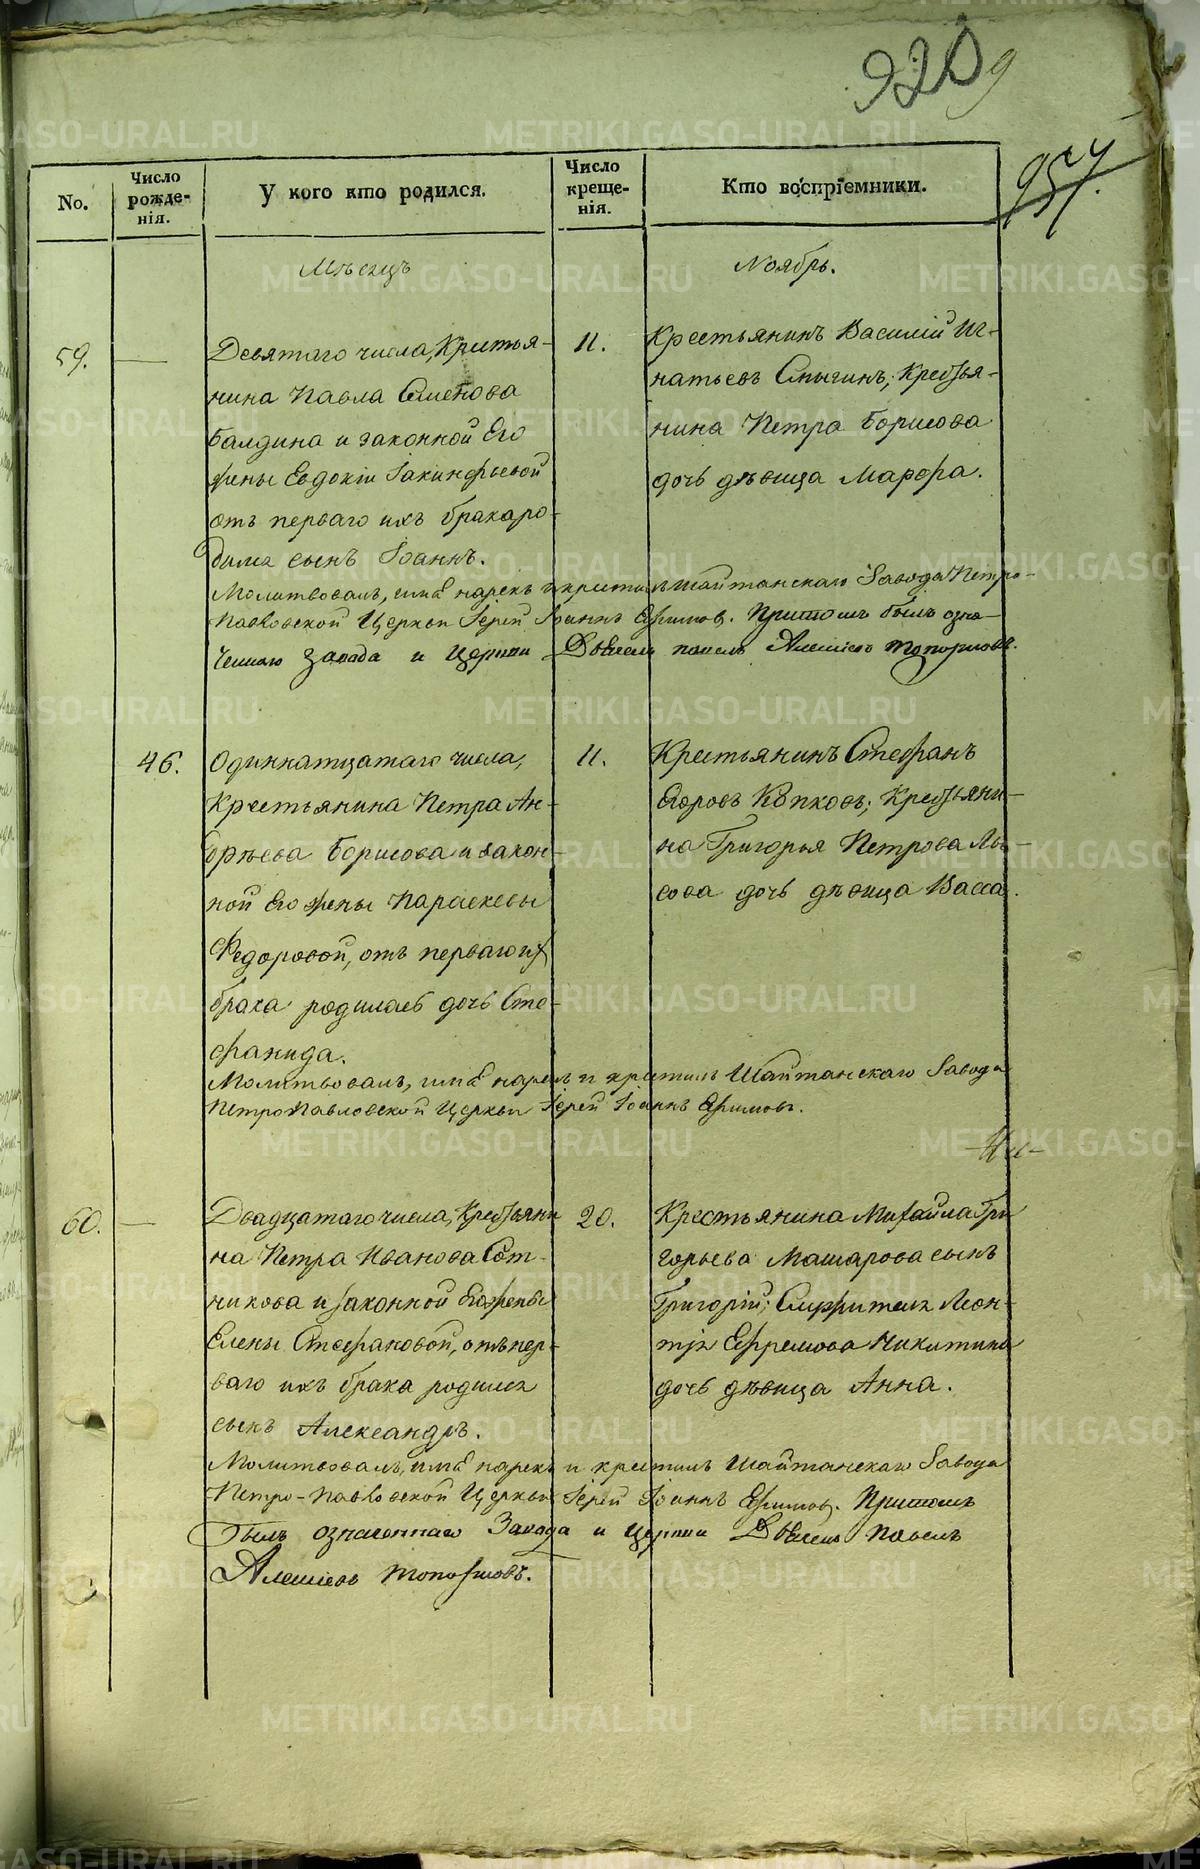 920 9
957.
No.
Число рожде-нія.
У кого кто родился.
Число креще-нія.
Кто воспріемники.
Мѣсяцъ
Ноябрь.
59.
—
Девятаго числа, Крестья-
нина Павла Семенова
Балдина и законной Его
жены Евдокіи Іакинфьевой
отъ перваго ихъ брака ро-
дился сынъ Іоаннъ.
11.
Крестьянинъ Василій Иг-
натьевъ Смыгинъ; Кресть-
нина Петра Борисова
дочь дѣвица Марфа.
Молитвовалъ, имя нарекъ и крестилъ Шайтанскаго Завода Петро-
Павловской Церкви Іерей Іоаннъ Ефимовъ. Притомъ былъ озна-
ченнаго Завода и Церкви Дьячекъ Павелъ Алексіевъ Топорковъ.
46.
Одиннатцатаго числа,
Крестьянина Петра Ан-
дрѣева Борисова и закон-
ной Его жены Параскевы
Федоровой, отъ перваго ихъ
брака родилась дочь Сте-
фанида.
11.
Крестьянинъ Стефанъ
Копковъ; Крестьяни-
на Григорья Петрова Лы-
сова дочь дѣвица Васса.
Молитвовалъ, имя нарекъ и крестилъ Шайтанскаго Завода
Петропавловской Церкви Іерей Іоаннъ Ефимовъ.
60.
—
Двадцатаго числа, Крестьяни
на Петра Иванова Сот-
никова и законной Его жены
Елены Стефановой, отъ пер-
ваго ихъ брака родился
сынъ Александръ.
20.
Крестьянина Михайла Гри
горьева Машарова сынъ
Григорій; Леон-
тія Ефремова Никитина
дочь дѣвица Анна.
Молитвовалъ, имя нарекъ и крестилъ Шайтанскаго Завода
Петро-Павловской Церкви Іерей Іоаннъ Ефимовъ. Притомъ
былъ означеннаго Завода и Церкви Дьячекъ Павелъ
Алексіевъ Топорковъ.
METRIKI.GASO-URAL.RU